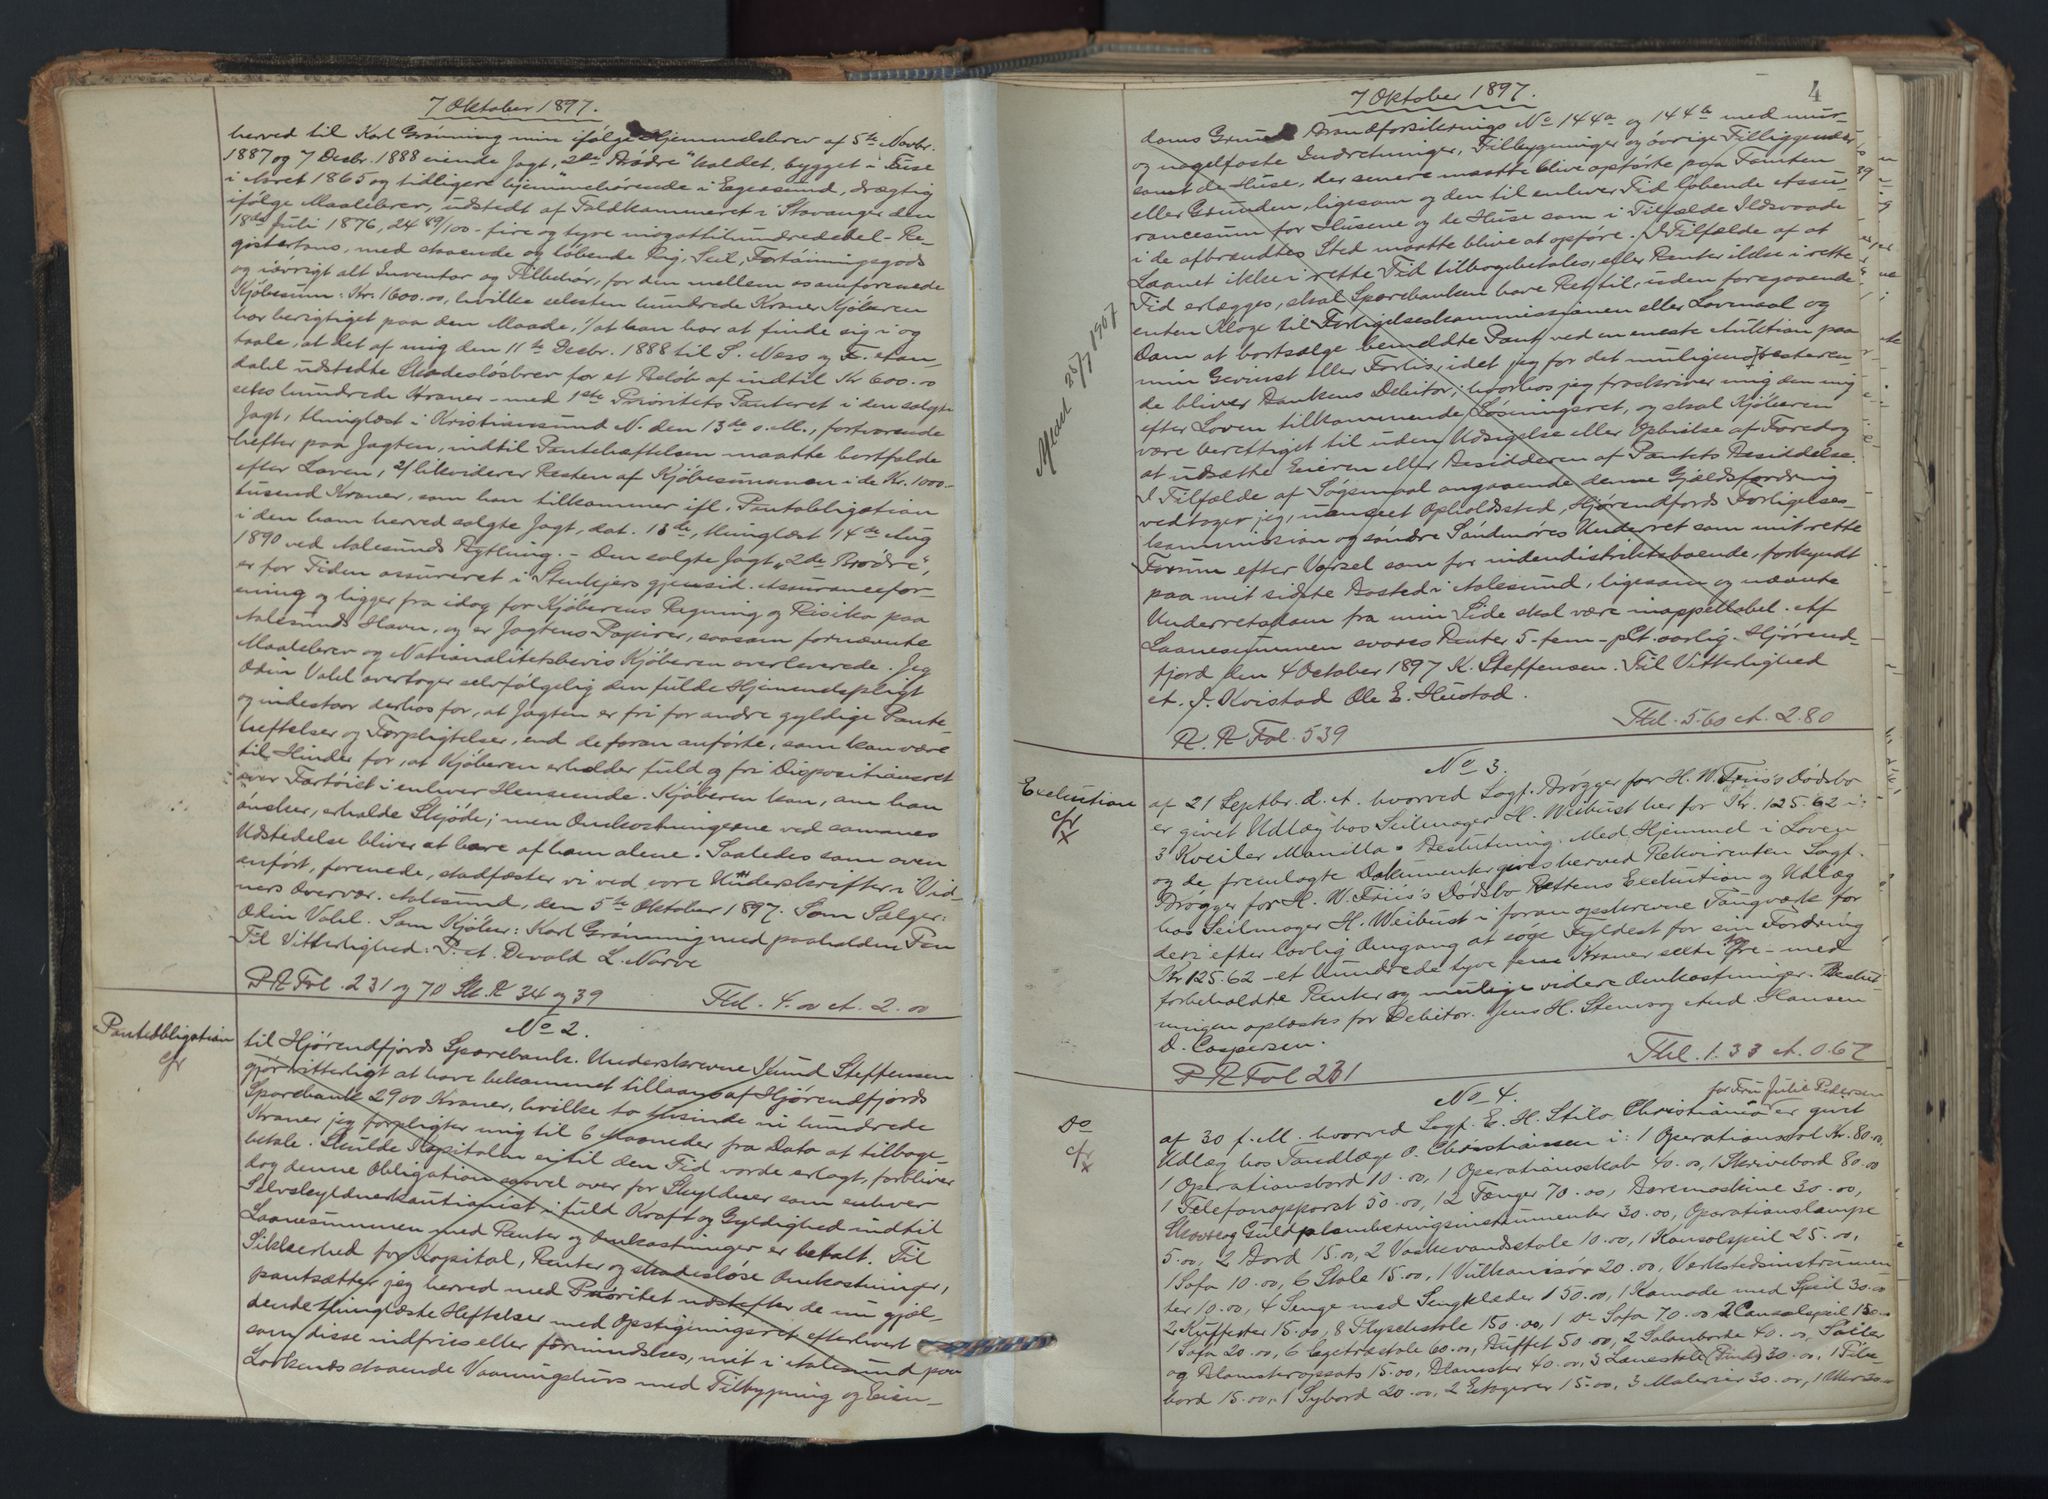 7 Oktober 1897.
herved til Karl Grønning min ifølge Hjemmelsbrev af 5te Novbr.
1887 og 7 Desbr. 1888 eiende Jagt, "2de Brødre" kaldet, bygget i
i Aaret 1865 og tidligere hjemmehørende i Egersund, drægtig
ifølge Maalebrev, udstedt af Toldkammeret i Stavanger den
18de Juli 1876, 24 89/100 - fire og tyve niogottihundrededel - Re-
gistertons, med staaende og løbende Rig, Seil, Fortøiningsgods
og iøvrigt alt Inventar og Tilbehør, for den mellem os omforenede
Kjøbesum: Kr. 1600.00, hvilke seksten hundrede Kroner Kjøberen
har berigtiget paa den Maade, 1/ at han har at finde sig i og
taale, at det af mig den 11te Desbr. 1888 til S. Ness og F.
dahl udstedte Skadesløsbrev for et Beløb af indtil Kr 600.00
seks hundrede Kroner - med 1ste Prioritets Panteret i den solgte
Jagt, thinglæst i Kristiansund N. den 13de s. M., fortvarende
hefter paa Jagten, indtil Panteheftelsen maatte bortfalde
efter Loven, 2/ likviderer Resten af Kjøbesummen i de Kr. 1000.-
tusend Kroner, som han tilkommer ifl. Pantobligation
i den ham herved solgte Jagt, dat. 13de, thinglæst 14de Aug
1890 ved Aalesunds Bything. - Den solgte Jagt, "2de Brødre",
er for Tiden assureret i Stenkjers gjensid. Assurancefor-
ening og ligger fra idag for Kjøberens Regning og Risiko paa
Aalesunds Havn, og er Jagtens Papirer, saasom fornævnte
Maalebrev og Nationalitetsbevis Kjøberen overleverede. Jeg
Odin Vahl overtager selvfølgelig den fulde Hjemmelspligt
og indestaar derhos for, at Jagten er fri for andre gyldige Pante-
heftelser og Forpligtelser, end de foran anførte, som kan være
til Hinder for, at Kjøberen erholder fuld og fri Dispositionsret
over Fartøiet i enhver Henseende. Kjøberen kan, om han
ønsker, erholde Skjøde; men Omkostningerne ved sammes
Udstedelse bliver at bære af ham alene. Saaledes som oven
anført, forenede, stadfæster vi ved vore Underskrifter i Vid-
ners Overvær. Aalesund, den 5te Oktober 1897. Som Sælger:
Odin Vahl. Som Kjøber: Karl Grønning med paaholden Pen
Til Vitterlighed: P. A. Devold L. Narve
P R Fol. 231 og 70 Sk. R 34 og 39 Thl. 4.00 A. 2.00
No 2.
Panteobligation
cfr
til Hjørendfjords Sparebank. Underskrevne Knud Steffensen
gjør vitterligt at have bekommet tillaans af Hjørendfjords
Sparebank 2900 Kroner, hvilke to tusinde ni hundrede
Kroner jeg forpligter mig til 6 Maaneder fra Dato at tilbage-
betale. Skulde Kapitalen ei til den Tid vorde erlagt, forbliver
dog denne Obligation saavel over for Skyldner som enhver
Selvskyldnerkautionist i fuld Kraft og Gyldighed indtil
Laanesummen med Renter og Omkostninger er betalt. Til
Sikkerhed for Kapital, Renter og skadesløse Omkostninger,
pantsætter jeg herved med Prioritet næstefter de nu gjæl-
dende thinglæste Heftelser med Opstigningsret efterhvert
som disse indfries eller formindskes, mit i Aalesund paa
Lorkenæs staaende Vaaningshus med Tilbygning og Eien-
4
7 Oktober 1897.
doms Grund Brandforsikrings No 144a og 144b med mur-
og nagelfaste Indretninger, Tilbygninger og øvrige Tilliggender
samt de Huse, der senere maatte blive opførte paa Tomten
eller Grunden, ligesom og den til enhver Tid løbende Assu-
rancesum for Husene og de Huse som i Tilfælde Ildsvaade
i de afbrændtes Sted maatte blive at opføre. I Tilfælde af at
Laanet ikke i rette Tid tilbagebetales, eller Renter ikke i rette
Tid erlægges, skal Sparebanken have Ret til, uden foregaaende
enten Klage til Forligelseskommissionen eller Lovmaal og
Dom at bortsælge bemeldte Pant ved en eneste Auktion paa
min Gevinst eller Forlis, idet jeg for det muligens resteren-
de bliver Bankens Debitor, hvorhos jeg fraskriver mig den mig
efter Loven tilkommende Løsningsret, og skal Kjøberen
være berettiget til uden Udsigelse eller Opbielse af Faredag
at udsætte Eieren eller Besidderen af Pantets Besiddelse.
I Tilfælde af Søgsmaal angaaende denne Gjældsfordring
vedtager jeg, uanseet Opholdssted, Hjørendfjords Forligelses-
kommission og søndre Søndmøres Underret som mit rette
Forum efter Varsel som for indendistriktsboende, forkyndt
paa mit sidste Bosted i Aalesund, ligesom og nævnte
Underretsdom fra min Side skal være inappellabel. Af
Laanesummen svares Renter 5-fem-pCt. aarlig. Hjørend-
fjord den 4 October 1897 K. Steffensen. Til Vitterlighed
A. J. Kvistad Ole E. Hustad.
Thl. 5.60 A. 2.80
P. R Fol. 539
Aflæst 26/7 1907
No 3.
Exekution
cfr
x
af 21 Septbr. d. A. hvorved Sagf. Brøgger for H. W. Friis's Dødsbo
er givet Udlæg hos Seilmager H. Weibust her for Kr. 125.62 i:
3 Kveiler Manilla. Beslutning. Med Hjemmel i Loven
og de fremlagte Dokumenter gives herved Rekvirenten Sagf.
Brøgger for H. W. Friis's Dødsbo Rettens Exekution og Udlæg
hos Seilmager H. Weibust i foran opskrevne Taugværk for
deri efter lovlig Omgang at søge Fyldest for sin Fordring
Kr 125.62 - et hundrede tyve fem Kroner sexti to Øre - med
forbeholdte Renter og mulige videre Omkostninger. Beslut-
ningen oplæstes for Debitor. Jens H. Stenes og And. Hansen
D. Caspersen.
Thl. 1.33 A. 0.67
P R Fol 231
No 4.
Do
cfr
x
for Fru Julie Pedersen
af 30 f. M. hvorved Sagf. E. H. Stilo, Christiania er givet
Udlæg hos Tandlæge O. Christiansen i: 1 Operationsstol Kr. 80.00,
1 Operationsbord 10.00, 1 Operationsskab 40.00, 1 Skrivebord 80.00
1 Telefonapparat 50.00, 12 Tænger 70.00, Boremaskine 30.00,
Skovs og Guldplomberingsinstrumenter 30.00, Operationslampe
5.00, 2 Bord 15.00, 2 Vaskevandsstole 10.00, 1 Konsolspeil 25.00,
1 Sofa 10.00, 6 Stole 15.00, 1 Vulkanisør 20.00, Verkstedsinstrumen
ter 10.00, 4 Senge med Sengklæder 150.00, 1 Komode med Speil 30.00
2 Kufferter 15.00, 8 Plyschstole 150.00, 1 do Sofa 70.00 2 Consolspeil 150.00
1 Sofa 20.00, 6 Egetræstole 60.00, Buffet 50.00, 2 Salonborde 40.00,
og Blomsteropsats 15.00, Blomster 40.00, 3 Lænestole 30.00, 1
bord 15.00, 1 Sybord 20.00, 2 Etagerer 15.00, 3 Malerier 30.00, 1 Uhr 30.00